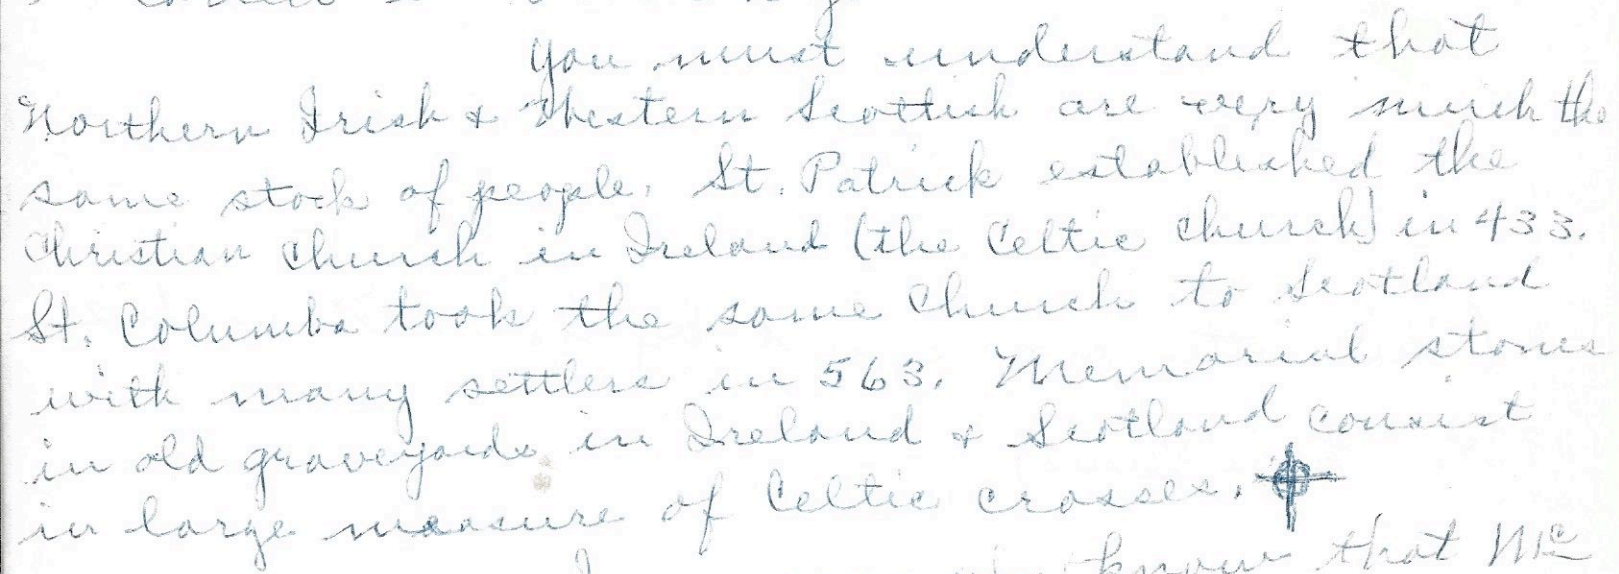 You must understand that
Northern Irish & Western Scottish are very much the
same stock of people. St. Patrick established the
Christian Church in Ireland (the Celtic Church) in 433.
St. Columba took the same Church to Scotland
with many settlers in 563. Memorial stones
in old graveyards in Ireland & Scotland consist
in large measure of Celtic crosses.
know that Mc